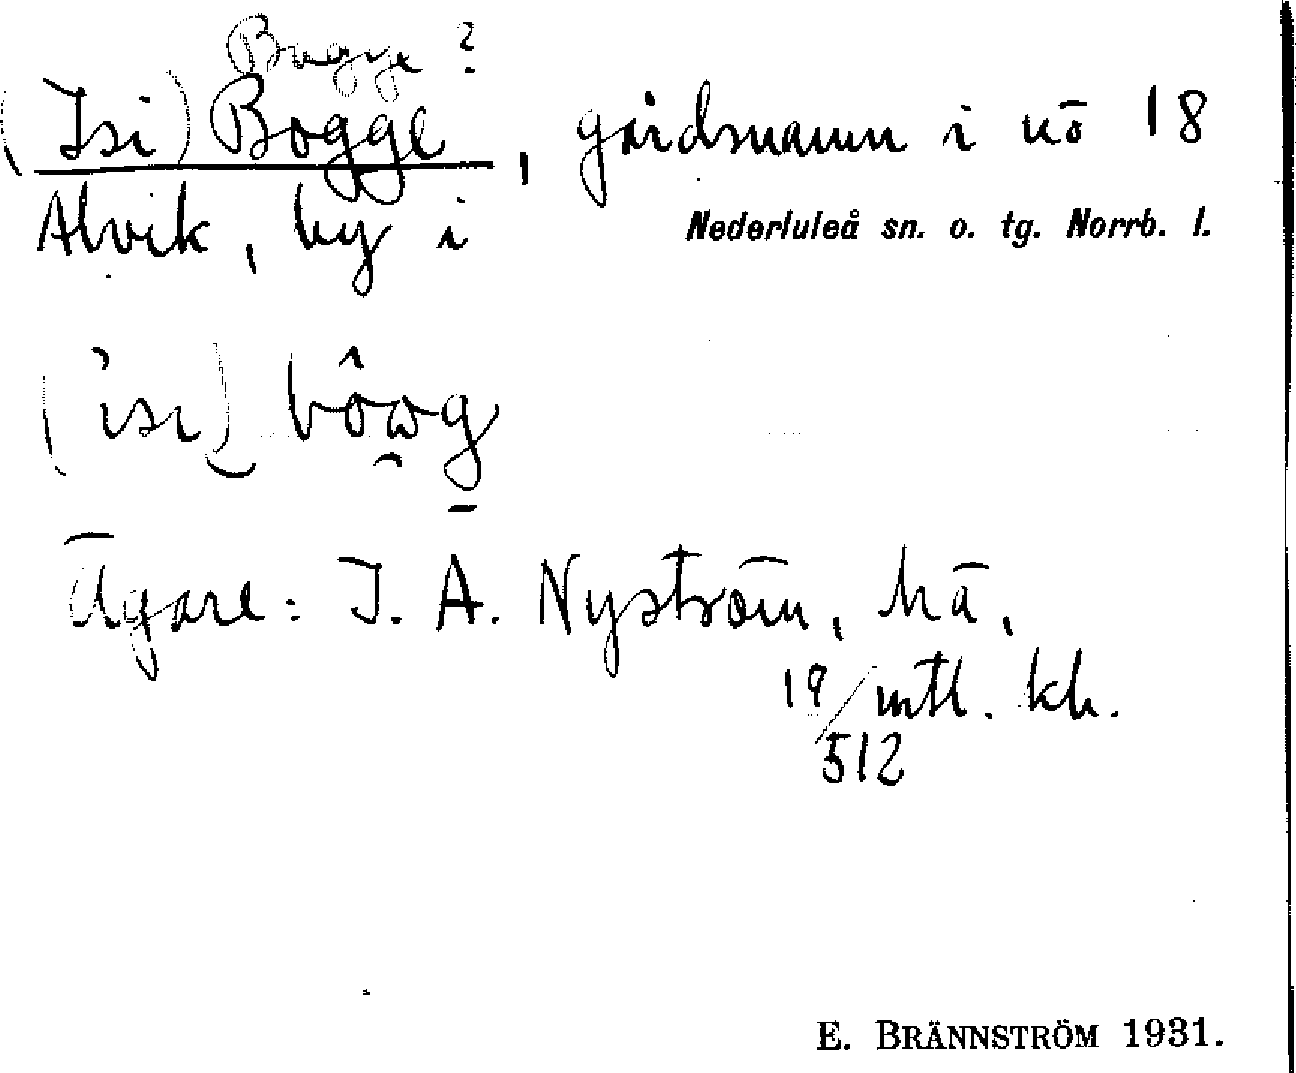 Bugge ?
(Isi) Bogge, gårdsnamn i nö 18
Alvik, by i Nederluleå sn. o. tg. Norrb. l.
Ägare: J. A. Nyström, hä,
19/512 mtl. kh.
E. BRÄNNSTRÖM 1931.